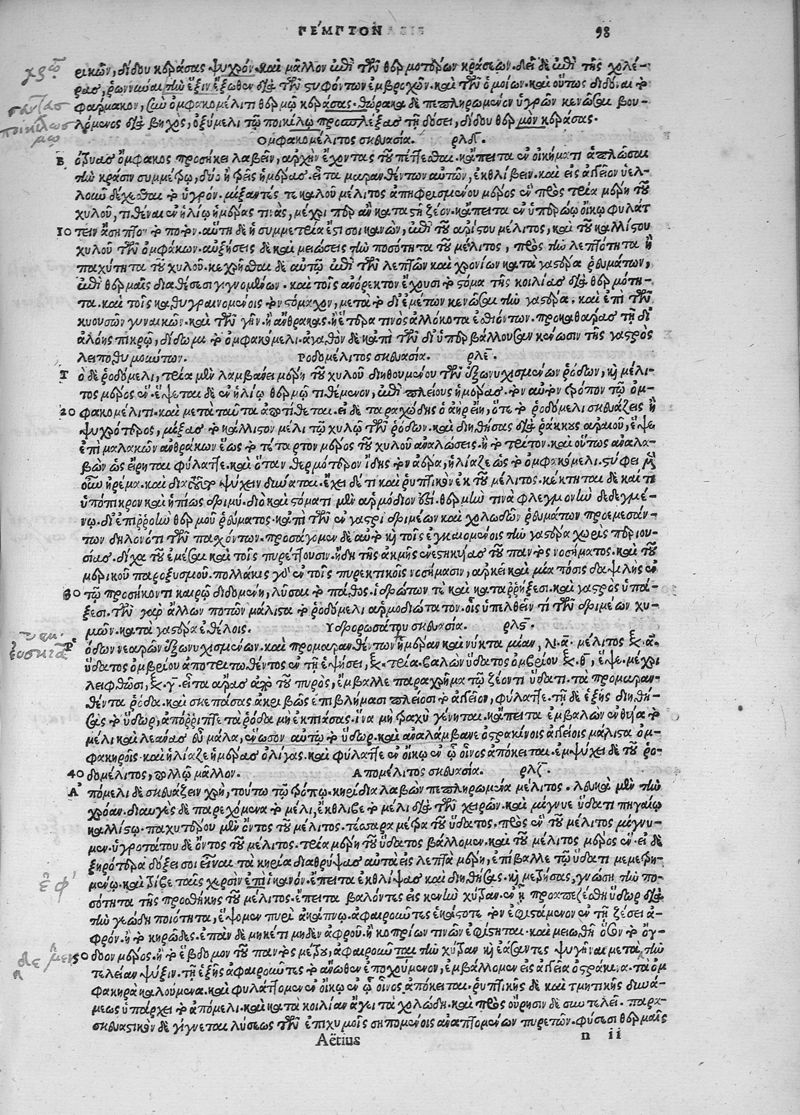 ΠΕΜΠΤΟΝ 98
εικῶν, δίδου κεράσας ψυχρόν. καὶ μᾶλλον ἐπὶ τῶν θερμοτέρων κράσεων. δεῖ δὲ ἐπὶ τῆς χολέ-
φάρμακον, σὺν ὀμφακομέλιτι θερμῷ κεράσας. θώρακα δὲ πεπληρωμένον ὑγρῶν κενῶσαι βου-
λόμενος διὰ βηχὸς, ὀξύμελι τῷ ποικίλῳ προσπλέξας τῇ δόσει, δίδου θερμὸν κεράσας.
Ομφακομέλιτος σκευασία. ρλδ.
Β ότρυας ὄμφακος προσήκει λαβεῖν, ἀρχὴν ἔχοντας τοῦ πέττεσθαι. κἄπειτα ἐν οἰκήματι ἁπλῶσαι
τὴν κρᾶσιν συμμέτρῳ, δύο ἢ τρεῖς ἡμέρας. εἶτα μαρανθέντων αὐτῶν, ἐκθλίβειν. καὶ εἰς ἀγγεῖον ὑελ-
λοιῶ δέχεσθαι τὸ ὑγρόν. μίξαντές τε καλοῦ μέλιτος ἀπηφρισμένου μέρος ἓν πρὸς τρία μέρη τοῦ
χυλοῦ, τιθέναι ἐν ἡλίῳ ἡμέρας τινὰς, μέχρι περ ἂν καταστῇ ζέον. κἄπειτα ἐν ὑπερῴῳ οἴκῳ φυλάτ
10 τειν ἄσηπτον τὸ ποτόν. αὕτη δὲ ἡ συμμετρία ἐστὶ σοι κανὼν, ἐπὶ τοῦ ἀρίστου μέλιτος, καὶ τοῦ καλλίστου
χυλοῦ τῶν ὀμφάκων. αὐξήσεις δὲ καὶ μειώσεις τὴν ποσότητα τοῦ μέλιτος, πρὸς τὴν λεπτότητα ἢ
παχύτητα τοῦ χυλοῦ. κεχρῆσθαι δὲ αὐτῷ ἐπὶ τῶν λεπτῶν καὶ χρονίων κατὰ γαστέρα ῥευμάτων,
ἐπὶ θερμαῖς διαθέσεσι γινομένων. καὶ τοῖς ἀνόρεκτον ἔχουσι τὸ στόμα τῆς κοιλίας διὰ θερμότη-
τα. καὶ τοῖς καθυγραινομένοις τὸν στόμαχον, μετὰ τὸ δι' ἐμέτων κενῶσαι τὴν γαστέρα. καὶ ἐπὶ τῶν
κυουσῶν γυναικῶν. καὶ τῶν γῆν ἢ ἄνθρακας ἢ ἕτερα τινὸς ἀλλόκοτα ἐσθιόντων. προκαθάρας τῇ δι'
ἀλόης πικρᾷ, δίδωμι τὸ ὀμφακόμελι. ἀγαθὸν δὲ κἀπὶ τῶν δι' ὑπερβάλλουσαν κένωσιν τῆς γαστρὸς
λειποθυμούντων. Ροδομέλιτος σκευασία. ρλε.
Τ ὸ δὲ ῥοδόμελι, τρία μὲν λαμβάνει μέρη τοῦ χυλοῦ διηθουμένου τῶν ἐξωνυχισμένων ῥόδων, καὶ μέλι-
τος μέρος ἕν. ἕψεται δὲ ἐν ἡλίῳ θερμῷ τιθέμενον, ἐπὶ πλείους ἡμέρας. τὸν αὐτὸν τρόπον τῷ ὀμ-
20 φακομέλιτι. καὶ μετὰ ταῦτα ἀποτίθεται. εἰ δὲ ταραχώδης ὁ ἀὴρ εἴη, ὅτε τὸ ῥοδόμελι σκευάζεις ἢ
ψυχρότερος, μίξας τὸ κάλλιστον μέλι τῷ χυλῷ τῶν ῥόδων. καὶ διηθήσας διὰ ῥάκους ἀραιοῦ, ἕψε
ἐπὶ μαλακῶν ἀνθράκων ἕως τὸ τέταρτον μέρος τοῦ χυλοῦ ἀναλώσεις. ἢ τὸ τρίτον. καὶ οὕτως ἀναλα-
βὼν ὡς εἴρηται φύλαττε. καὶ ὅταν θερμότερον ἴδῃς τὸν ἀέρα, ἡλίαζε ὡς τὸ ὀμφακόμελι. στύφει μὲν
οὖν ἠρέμα. καὶ διαρκῶς ψύχειν δύναται. ἔχει δέ τι καὶ ῥυπτικὸν ἐκ τοῦ μέλιτος. κέκτηται δὲ καί τι
ὑπόπικρον καὶ ἠπίως δριμύ. διὸ καὶ στόματι μὲν ἁρμόδιον ἐστὶ. θερμὴν τινὰ φλεγμονὴν δεδεγμέ-
νῳ. δι' ἐπιρροὴν θερμοῦ ῥεύματος. κἀπὶ τῶν ἐν γαστρὶ δριμέων καὶ χολωδῶν ῥευμάτων προεμεσάν-
των δηλονότι τῶν πασχόντων. προσάγομεν δὲ αὐτὸ καὶ τοῖς ἐγκαιομένοις τὴν γαστέρα χωρὶς περιου-
σίας. δίχα τοῦ ἐμέσαι. καὶ τοῖς πυρέττουσιν. ἤδη τῆς ἀκμῆς ἐνεστηκυίας τοῦ παντὸς νοσήματος. καὶ τοῦ
μερικοῦ παροξυσμοῦ. πολλάκις γοῦν ἐν τοῖς πυρεκτικοῖς νοσήμασιν, ἀρκεῖ καὶ μία πόσις δαψιλὴς ἐν
30 τῷ προσήκοντι καιρῷ διδομένη, λῦσαι τὸ πάθος. ἱδρώτων τε καὶ καταρρήξεσι. καὶ γαστρὸς ὑπά-
ξεσι. τῶν γὰρ ἄλλων ποτῶν μάλιστα τὸ ῥοδόμελι ἁρμοδιώτατον. οἷς ὑπελθεῖν τι τῶν δριμέων χυ-
μῶν. κατὰ γαστέρα ἐθέλοις. Υδροροσάτου σκευασία. ρλς.
Ρ όδων νεαρῶν ἐξωνυχισμένων. καὶ προμαρανθέντων ἡμέραν καὶ νύκτα μίαν, λι. α. μέλιτος ξ. α.
λειφθῶσι, ξ. γ. εἶτα ἄρας ἀπὸ τοῦ πυρὸς, ἔμβαλλε παραχρῆμα τῷ ζέοντι ὕδατι. τὰ προμαραν-
θέντα ῥόδα. καὶ σκεπάσας ἀκριβῶς ἐπιβλήμασι πλείοσι τὸ ἀγγεῖον, φύλαττε. τῇ δὲ ἑξῆς διηθή-
σας τὸ ὕδωρ, ἀπόρριπτε τὰ ῥόδα μὴ ἐκπιάσας. ἵνα μὴ παχὺ γένηται. κἄπειτα ἐμβαλὼν ἐν θυΐᾳ τὸ
μέλι καὶ λεάνας εὖ μάλα, ἕνωσον αὐτῷ τὸ ὕδωρ. καὶ ἀναλάμβανε ὀστρακίνοις ἀγγείοις μάλιστα ὀμ-
φακηροῖς. καὶ ἡλίαζε ἡμέρας ὀλίγας. καὶ φύλαττε ἐν οἴκῳ ἐν ᾧ οἶνος ἀπόκειται. ἐμψύχει δὲ τοῦ ῥο-
40 δομέλιτος, πολλῷ μᾶλλον. Απομέλιτος σκευασία. ρλζ.
Α πόμελι δὲ σκευάζειν χρὴ, τούτῳ τῷ τρόπῳ. κηρίδια λαβὼν πεπληρωμένα μέλιτος. λευκὰ μὲν τὴν
χρόαν. διαυγὲς δὲ παρεχόμενα τὸ μέλι, ἔκθλιβε τὸ μέλι διὰ τῶν χειρῶν. καὶ μίγνυε ὕδατι πηγαίῳ
καλλίστῳ. παχυτέρου μὲν ὄντος τοῦ μέλιτος. τέσσαρα μέτρα τοῦ ὕδατος. πρὸς ἓν τοῦ μέλιτος μίγνυ-
μεν. ὑγροτάτου δὲ ὄντος τοῦ μέλιτος. τρία μέρη τοῦ ὕδατος βάλλομεν. καὶ τοῦ μέλιτος μέρος ἕν. εἰ δὲ
ξηρότερα δόξει σοι εἶναι τὰ κηρία διαθρύψας αὐτὰ εἰς λεπτὰ μέρη, ἐπίβαλλε τῷ ὕδατι μεμετρη-
μένῳ. καὶ τρίβε ταῖς χερσὶν ἐπὶ ἱκανόν. ἔπειτα ἐκθλίψας καὶ διηθήσας. καὶ μετρήσας, γνώσῃ τὴν πο-
σότητα τῆς προσθήκης τοῦ μέλιτος. ἔπειτα βαλόντες εἰς καινὴν χύτραν. ἐν ᾗ προαπεζέσθη ὕδωρ διὰ
τὴν γεώδη ποιότητα, ἕψομεν πυρὶ ἀκάπνῳ. ἀφαιροῦντες ἑκάστοτε τὸν ἐφιστάμενον ἐν τῇ ζέσει ἀ-
φρόν. ἢ τὸ κηρῶδες. ἐπὰν δὲ μηκέτι μηδὲν ἀφροῦ. ἢ κοπρίων τινῶν ἐφίστηται. καὶ μειωθῇ ὅσον τὸ ὄγ-
50 δοον μέρος. ἢ τὸ ἕβδομον τοῦ παντὸς μέτρου, ἀφαιροῦμεν τὴν χύτραν καὶ ἐάσαντες ψυγῆναι. μετὰ τὴν
τελείαν ψύξιν. τῇ ἑξῆς ἀφαιροῦντες τὸ ἄνωθεν ἐποχούμενον, ἐμβάλλομεν εἰς ἀγγεῖα ὀστράκινα. τὰ ὀμ
φακηρὰ καλούμενα. καὶ φυλάττομεν ἐν οἴκῳ ἐν ᾧ οἶνος ἀπόκειται. ῥυπτικῆς δὲ καὶ τμητικῆς δυνά-
μεως ὑπάρχει τὸ ἀπόμελι. καὶ κατὰ κοιλίαν ἄγει τὰ χολώδη. καὶ πρὸς οὔρησιν δὲ συντελεῖ. παρα-
σκευαστικὸν δὲ γίγνεται λύσεως τῶν ἐπὶ χυμοῖς σηπομένοις ἀναπτομένων πυρετῶν. φύσεσι θερμαῖς
Aëtius n ii